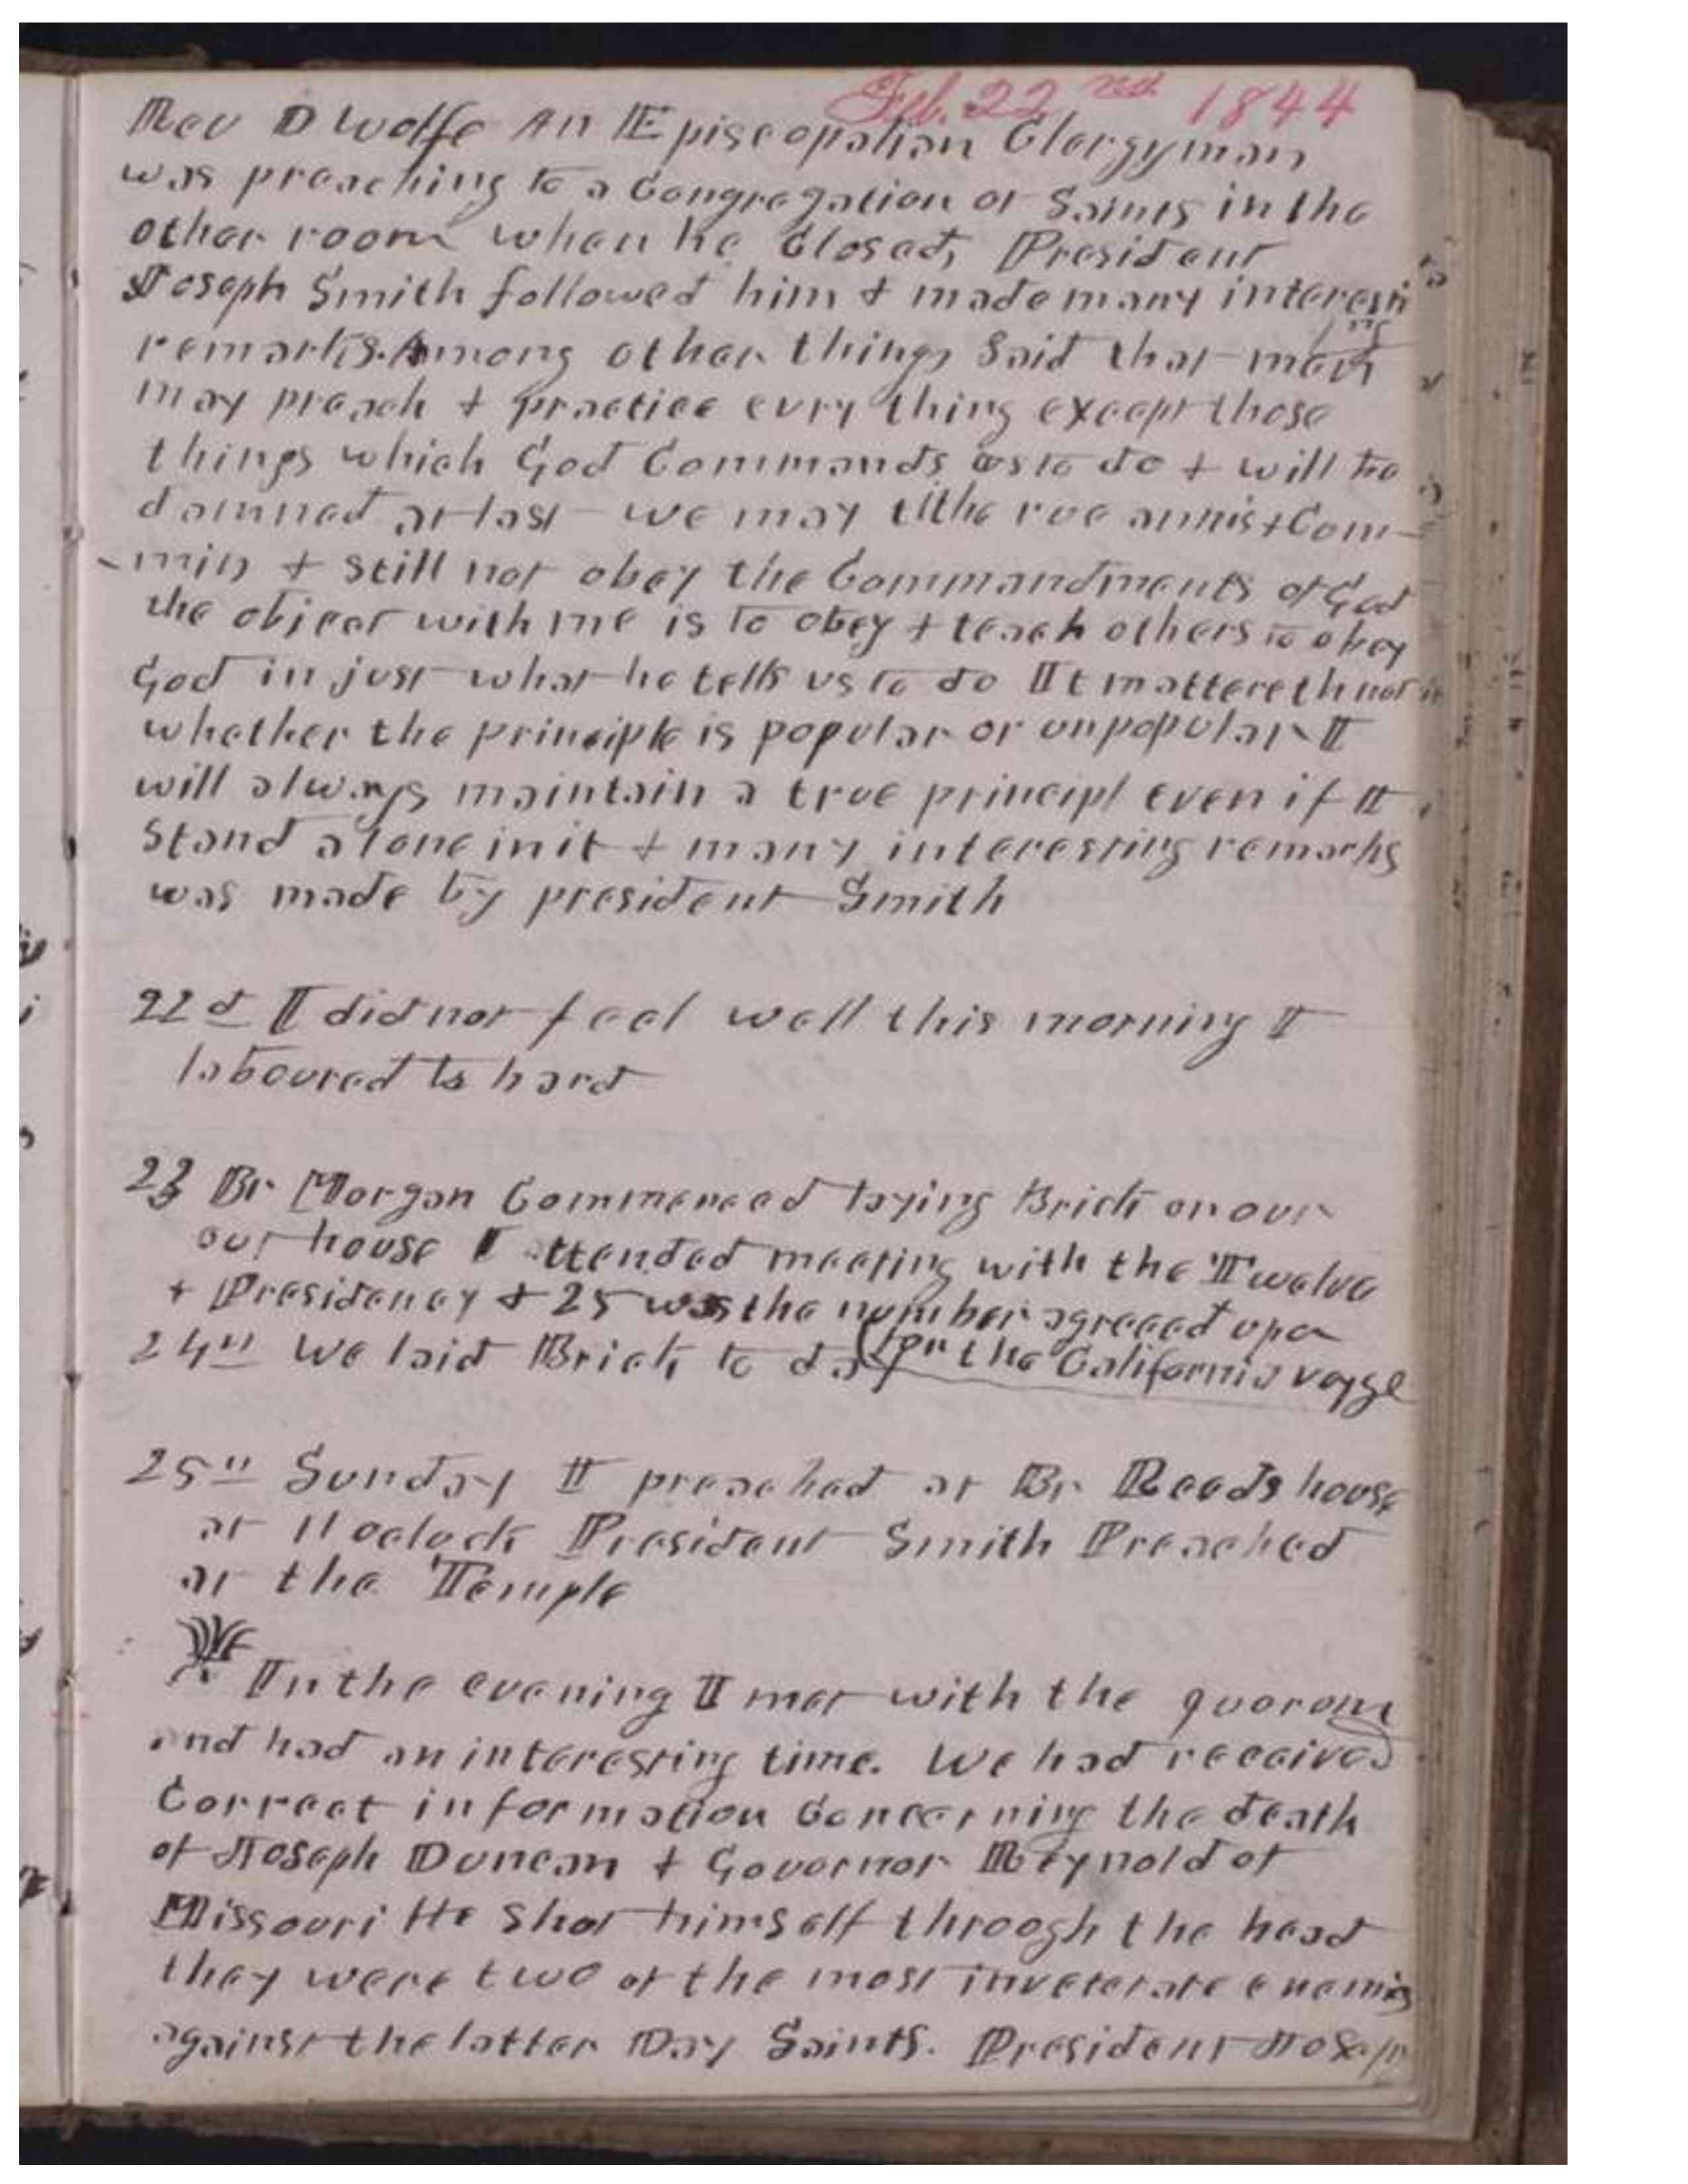 Feb. 22nd 1844
Rev D Wolfe An Episcopalian Clergyman
was preaching to a Congregation of Saints in the
other room when he Closed, President
Joseph Smith followed him & made many interesti
ng
remarks. Among other things Said that men
may preach & practice evry thing except those
things which God Commands us to do & will be
damned at last we may tithe rue annis & Com-
-min & still not obey the Commandments of God
the object with me is to obey & teach others to obey
God in just what he tells us to do It mattereth not
whether the principle is popular or unpopular I
will always maintain a true principl even if I
Stand alone in it & many interesting remarks
was made by president Smith
22d I did not feel well this morning I
laboured to hard
23 Br Morgan Commenced laying Brick on our
our house I attended meeting with the Twelve
& Presidency & 25 was the number agreeed upon
for the California voyge
24th We laid Brick to day
25th Sunday I preached at Br Reeds house
at 11 oclock President Smith Preached
at the Temple
In the evening I met with the quorom
and had an interesting time. We had received
Correct information Concerning the death
of Joseph Duncan & Governor Reynold of
Missouri He Shot himself through the head
they were two of the most inveterate enemies
against the latter Day Saints. President Joseph